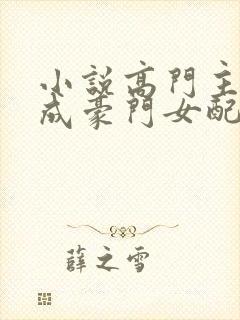 小說高門主
成豪門女配
薛之雪